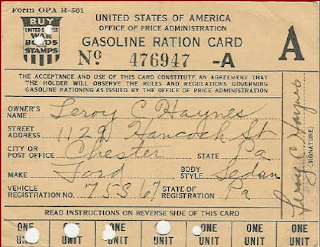 Form OPA R-561
UNITED STATES OF AMERICA
OFFICE OF PRICE ADMINISTRATION
BUY
UNITED STATES
WAR
BONDS
AND
STAMPS
GASOLINE RATION CARD
A
No 476947 -A
THE ACCEPTANCE AND USE OF THIS CARD CONSTITUTE AN AGREEMENT THAT
THE HOLDER WILL OBSERVE THE RULES AND REGULATIONS GOVERNING
GASOLINE RATIONING AS ISSUED BY THE OFFICE OF PRICE ADMINISTRATION
OWNER'S NAME Leroy C Haynes
STREET ADDRESS 1129 Hancock St
CITY OR POST OFFICE Chester STATE Pa
MAKE Ford BODY STYLE Sedan
VEHICLE REGISTRATION NO. 75S67 STATE OF REGISTRATION Pa
Leroy C Haynes
(SIGNATURE)
READ INSTRUCTIONS ON REVERSE SIDE OF THIS CARD
ONE ONE ONE ONE ONE ONE
UNIT UNIT UNIT UNIT UNIT